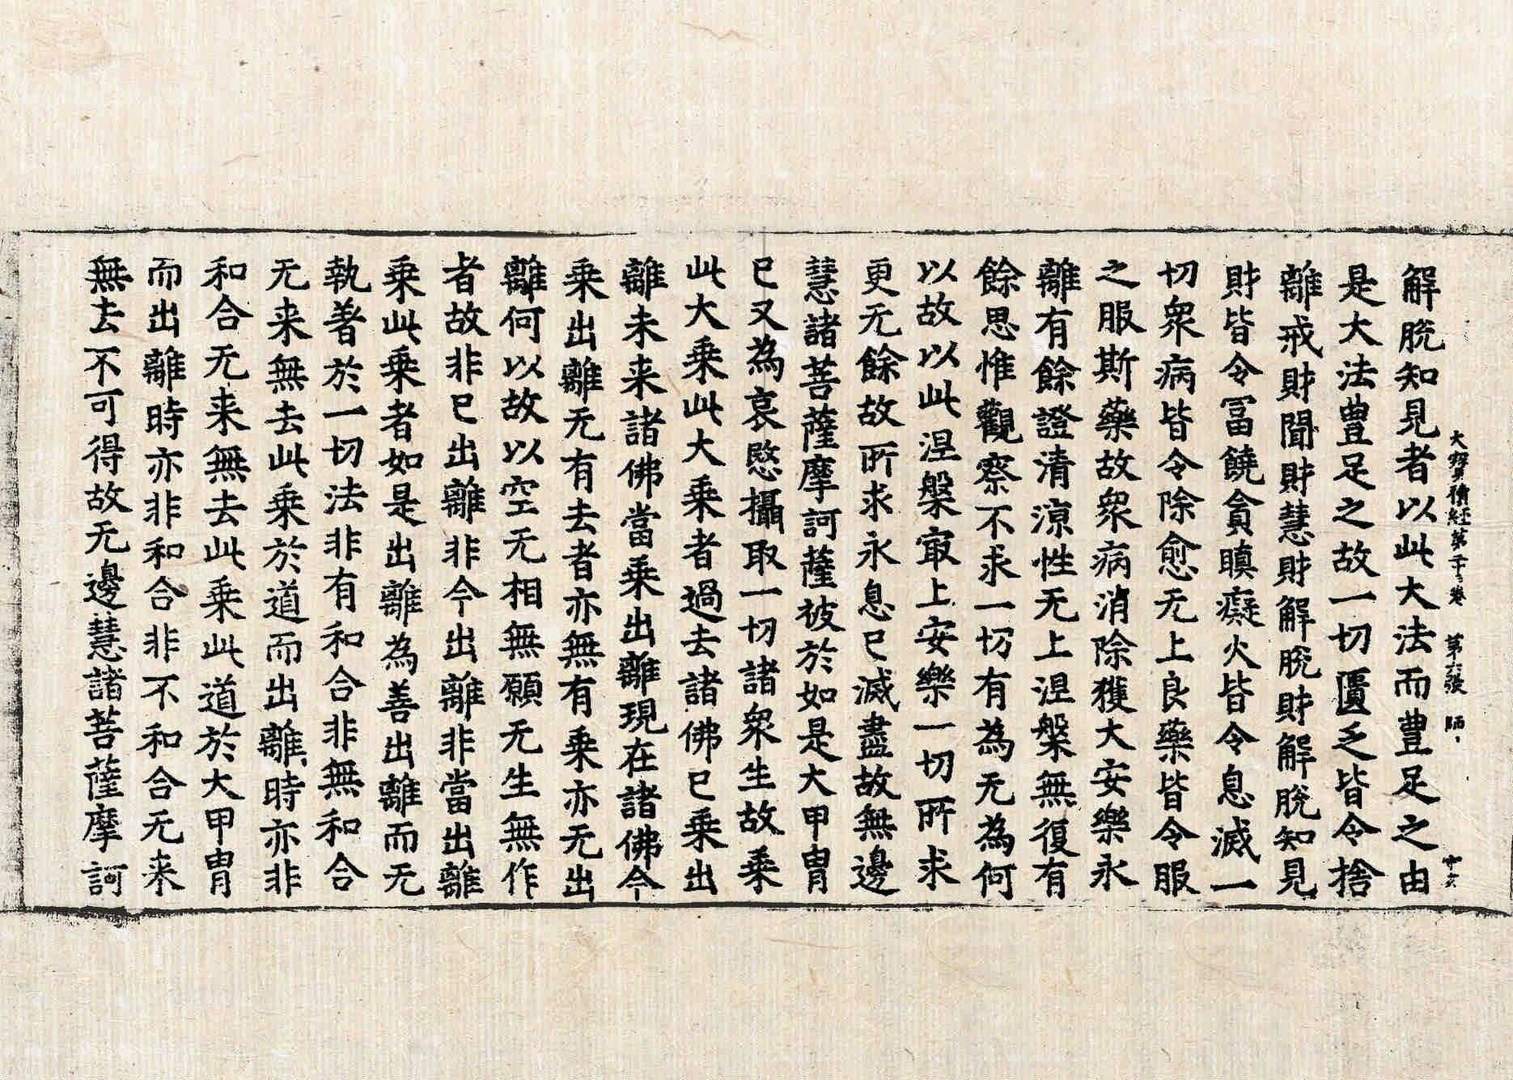 大寶積経第卷 第六張 師 十六
解脫知見者以此大法而豊足之由
是大法豊足之故一切匱乏皆令捨
離戒財聞財慧財解脫財解脫知見
財皆令冨饒貪瞋癡火皆令息滅一
切衆病皆令除愈无上良藥皆令服
之服斯藥故衆病消除獲大安樂永
離有餘證清涼性无上涅槃無復有
餘思惟觀察不求一切有為无為何
以故以此涅槃㝡上安樂一切所求
更无餘故所求永息已滅盡故無邊
慧諸菩薩摩訶薩被於如是大甲胄
已又為哀愍攝取一切諸衆生故乘
此大乘此大乘者過去諸佛已乘出
離未来諸佛當乘出離現在諸佛今
乘出離无有去者亦無有乘亦无出
離何以故以空无相無願无生無作
者故非已出離非今出離非當出離
乘此乘者如是出離為善出離而无
執著於一切法非有和合非無和合
无来無去此乘於道而出離時亦非
和合无来無去此乘此道於大甲胄
而出離時亦非和合非不和合无来
無去不可得故无邊慧諸菩薩摩訶